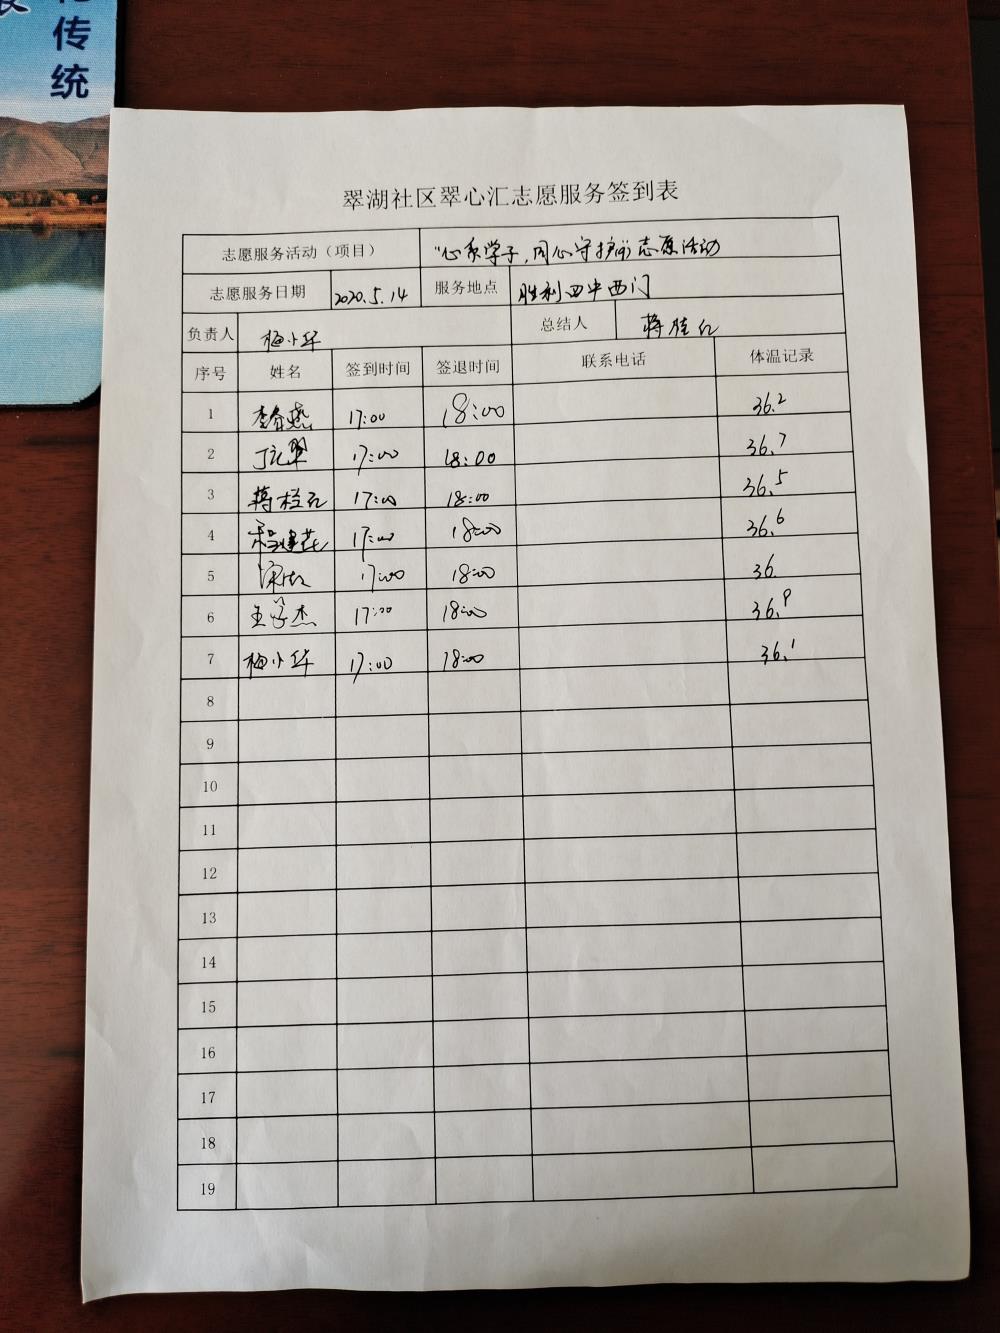 传统
翠湖社区翠心汇志愿服务签到表
志愿服务活动（项目） “心系学子，同心守护”志愿活动
志愿服务日期 2020.5.14 服务地点 胜利四中西门
负责人 梅小华 总结人 蒋桂红
序号 姓名 签到时间 签退时间 联系电话 体温记录
1 李春燕 17:00 18:00 36.2
2 17:00 18:00 36.7
3 蒋桂红 17:00 18:00 36.5
4 程建花 17:00 18:00 36.6
5 17:00 18:00 36.
6 王学杰 17:00 18:00 36.9
7 梅小华 17:00 18:00 36.1
8
9
10
11
12
13
14
15
16
17
18
19